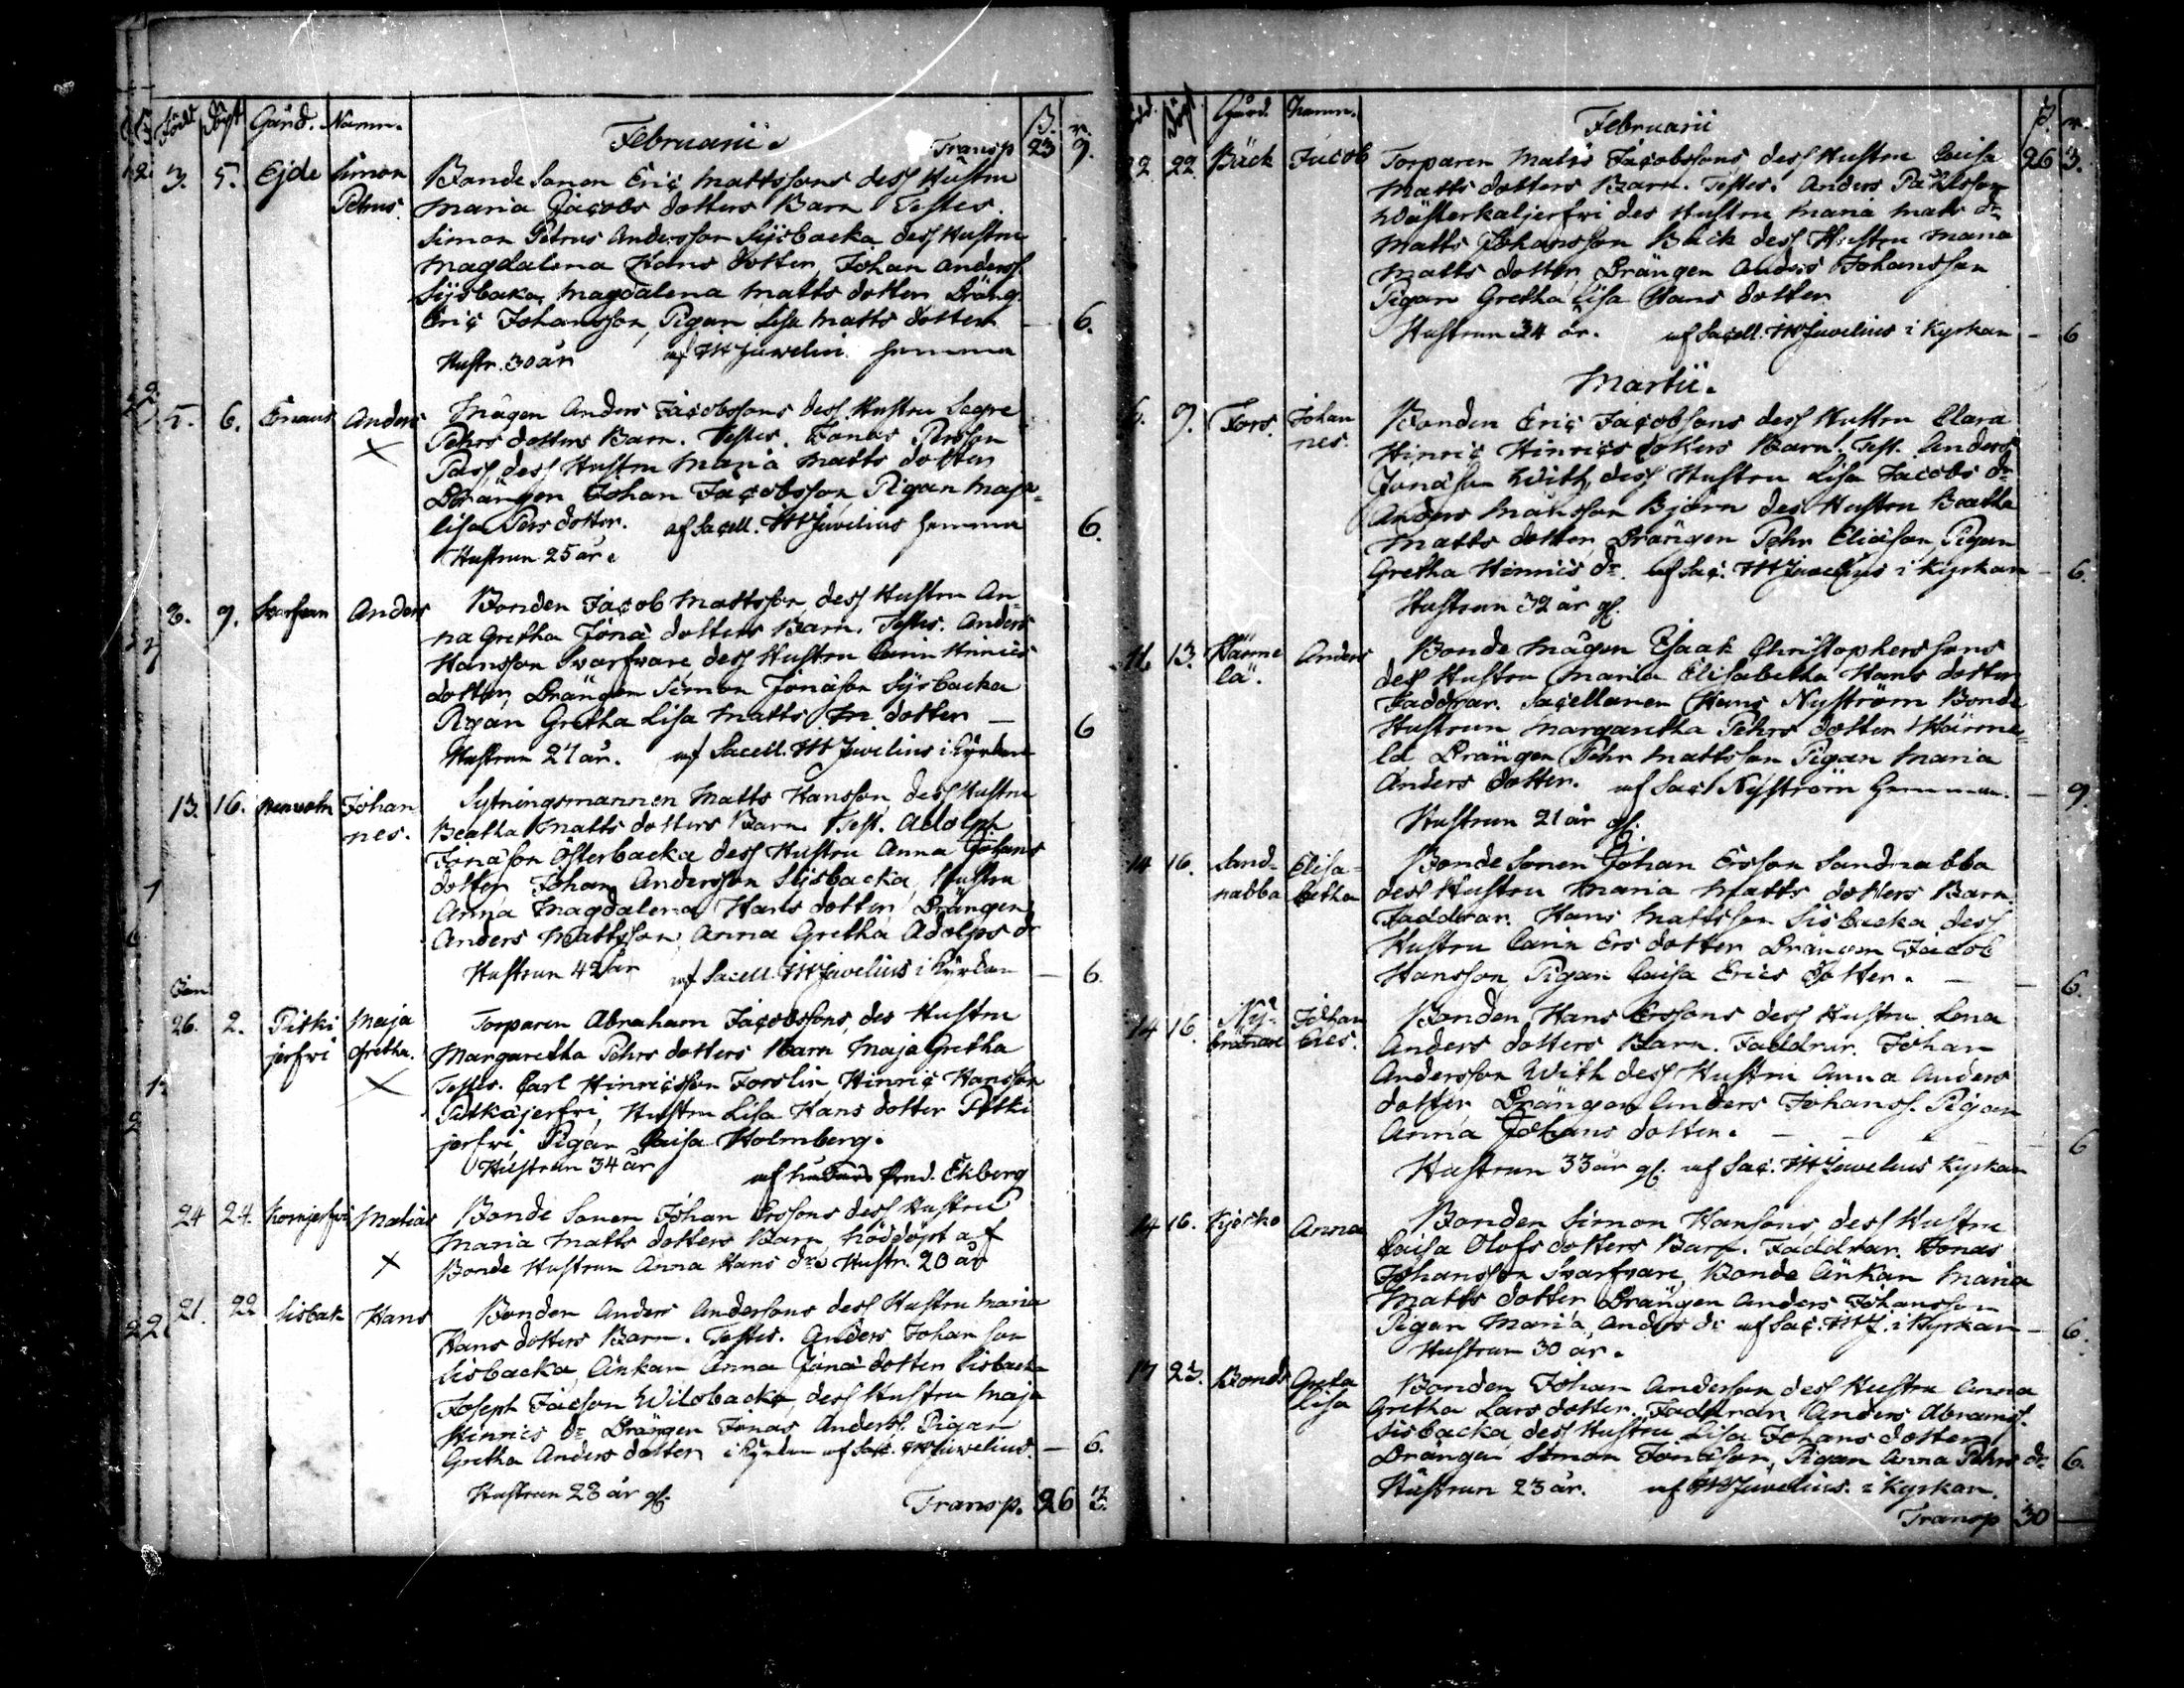 Född Döpt Gård. Namn. Februarii. Transp 23 9.
3. 5. Ejde Simon Bonde Sonen Eric Mattssons dess Hustru
Petrus. Maria Jacobs dotters Barn Testes.
Simon Petrus Andersson Sysbacka dess Hustru
Magdalena Hans dotter, Johan Anderss.
Sysbacka, Magdalena Matts dotter, Dräng.
Eric Johansson, Pigan Lisa Matts dotter 6.
Hustr. 30 år af Juvelius hemma
5. 6. Anders Mågen Anders Jacobssons dess Hustru
Pehrs dotters Barn. Testes. Jonas Persson
dess Hustru Maria Matts dotter
Drängen Johan Jacobsson, Pigan Maja
lisa Pers dotter. af Sacell. Juvelius hemma 6.
Hustrun 25 år.
9. Anders Bonden Jacob Mattsson, dess Hustru An-
na Gretha Jona dotters Barn. Testes. Anders
Hansson Svarfvare dess Hustru Hinrics
dotter, Drängen Simon Jonason Sysbacka
Pigan Gretha Lisa Matts dotter — 6
Hustrun 27 år. af Sacell. Juvelius i Kyrkan
13. 16. Johan Sytningsmannen Matts Hansson, dess Hustru
nes. Beatha Matts dotters Barn. Test. Adolph
Jonason Österbacka dess Hustru Anna Johans
dotter, Johan Andersson Sysbacka, Hustru
Anna Magdalena Hans dotter, Drängen
Anders Mattsson, Anna Gretha Adolps dr
Hustrun 42 år af Sacell. Juvelius i Kyrkan — 6.
Jan
26. 2. Pitki Maja Torparen Abraham Jacobssons, des Hustru
jerfvi Gretha. Margaretha Pehrs dotters Barn Maja Gretha
Testes. Carl Hinricsson Forslin, Hinric Hansson
Hustru Lisa Hans dotter Pitki
jerfvi, Pigan Caisa Holmberg.
Hustrun 34 år af Ekberg
24 24. Matias Bonde Sonen Johan Erssons dess Hustru
Maria Matts dotters Barn, nöddöpt af
Bonde Hustrun Anna Hans dr. Hustr. 20 år
21. 22 Sisbak Hans Bonden Anders Anderssons dess Hustru Maria
Hans dotters Barn. Testes. Anders Johanson
Sisbacka, Änkan Anna Jona dotter Sisbacka
Joseph Jacson Wilsbacka, dess Hustru Maja
Hinrics dr Drängen Jonas Anderss. Pigan
Gretha Anders dotter, i Kyrkan af Sac. Juvelius. — 6.
Hustrun 28 år gl. Transp. 26 3.
Född. Döpt Gård. Namn. Februarii
22 22. Bäck Jacob Torparen Matts Jacobssons dess Hustru Caisa 26 3.
Matts dotters Barn. Testes. Anders Påhlsson
des Hustru Maria Mats dr
Matts Johansson Bäck dess Hustru Maria
Matts dotter, Drängen Anders Johansson
Pigan Gretha Lisa Hans dotter
Hustrun 34 år. af Sacell. Juvelius i Kyrkan — 6
Martii.
6. 9. Fors. Johan Bonden Eric Jacobsons dess Hustru Clara
nes. Hinric Hinrics dotters Barn. Test. Anders
Jonason With, dess Hustru Lisa Jacobs dr
Anders Månsson Björn des Hustru Beatha
Matts dotter, Drängen Pehr Eliason, Pigan
Gretha Hinrics dr. af Sac. Juvelius i Kyrkan — 6.
Hustrun 32 år gl.
11. 13. Härme Anders Bonde Mågen Isaak Christopherssons
lä. dess Hustru Maria Elisabetha Hans dotter
Faddrar. Sacellanen Hans Nyström Bonde
Hustrun Margaretha Pehrs dotter Härme-
lä Drängen Pehr Mattsson Pigan Maria
Anders dotter. af Sac Nyström hemma. — 9.
Hustrun 21 år gl.
14 16. Sand- Elisa- Bonde Sonen Johan Ersson Sandnabba
nabba betha dess Hustru Maria Matts dotters Barn
Faddrar. Hans Mattsson Sisbacka dess
Hustru Carin Ers dotter Drängen Jacob
Hansson, Pigan Caisa Erics dotter. — 6.
14 16. Ny- Johan Bonden Hans Erssons dess Hustru Lena
brännare nes. Anders dotters Barn. Faddrar. Johan
Andersson With dess Hustru Anna Anders
dotter, Drängen Anders Johanss. Pigan
Anna Johans dotter. — 6
Hustrun 33 år gl. af Sac. Juvelius Kyrkan
14 16. Anna Bonden Simon Hansons, dess Hustru
Caisa Olofs dotters Barn. Faddrar. Jonas
Johansson Svarfvare, Bonde Änkan Maria
Matts dotter Drängen Anders Johansson
Pigan Maria Anders dr af Sac. i Kyrkan — 6.
Hustrun 30 år.
17 23. Bonds Greta Bonden Johan Anderson dess Hustru Anna
Lisa Gretha Lars dotter. Faddrar Anders Abramss.
Sisbacka, dess Hustru Lisa Johans dotter
Drängen Simon Jonason, Pigan Anna Pehrs dr 6.
Hustrun 23 år. af Juvelius. i Kyrkan.
Transp 30 —